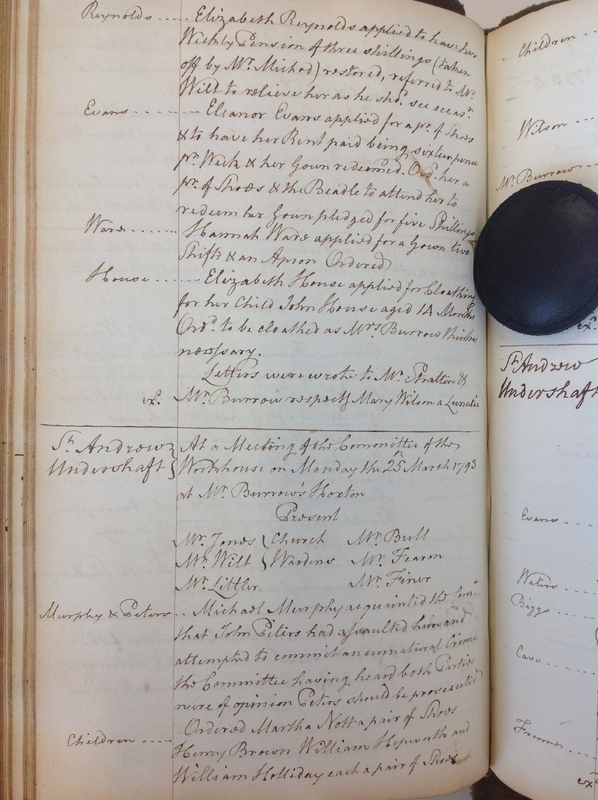 Reynolds ..... Elizabeth Reynolds applied to have her
Weekly Pension of three shillings (taken
off by Mr. Michod) restored, referred to Mr.
Wilt to relieve her as he sho.d see occas.n
Evans ........ Eleanor Evans applied for a pr. of Shoes
& to have her Rent paid being sixteenpence
pr. Week & her Gown redeemed. Ord.d her a
pr. of Shoes & the Beadle to attend her to
redeem her Gown pledged for five Shillings
Ware ....... Hannah Ware applied for a Gown two
Shifts & an Apron Ordered
House ........ Elizabeth House applied for Cloathing
for her Child John House aged 14 Months
Ord.d to be cloathed as Mrs. Burrow thinks
necessary.
Letters were wrote to Mr. Stratton &
ex. Mr. Burrow respectg Mary Wilson a Lunatic
St. Andrew Undershaft } At a Meeting of the Committee of the
Workhouse on Monday the 25th March 1793
at Mr. Burrow's Hoxton
Present
Mr. Jones } Church Mr. Bull
Mr. Wilt } Wardens Mr. Fearon
Mr. Littler Mr. Finer
Murphy & Peters .. Michael Murphy acquainted the Com.e
that John Peters had assaulted him and
attempted to commit an unnatural Crime
the Committee having heard both Parties
were of opinion Peters should be prosecuted
Ordered Martha Nott a pair of Shoes
Children ..... Henry Brown William Hepworth and
William Holliday each a pair of Shoes
Children ....
Wilson ....
Mr. Burrow ....
ex.
St. Andrew
Undershaft
Evans ....
Waters ....
Biggs ....
Cave ....
ex.